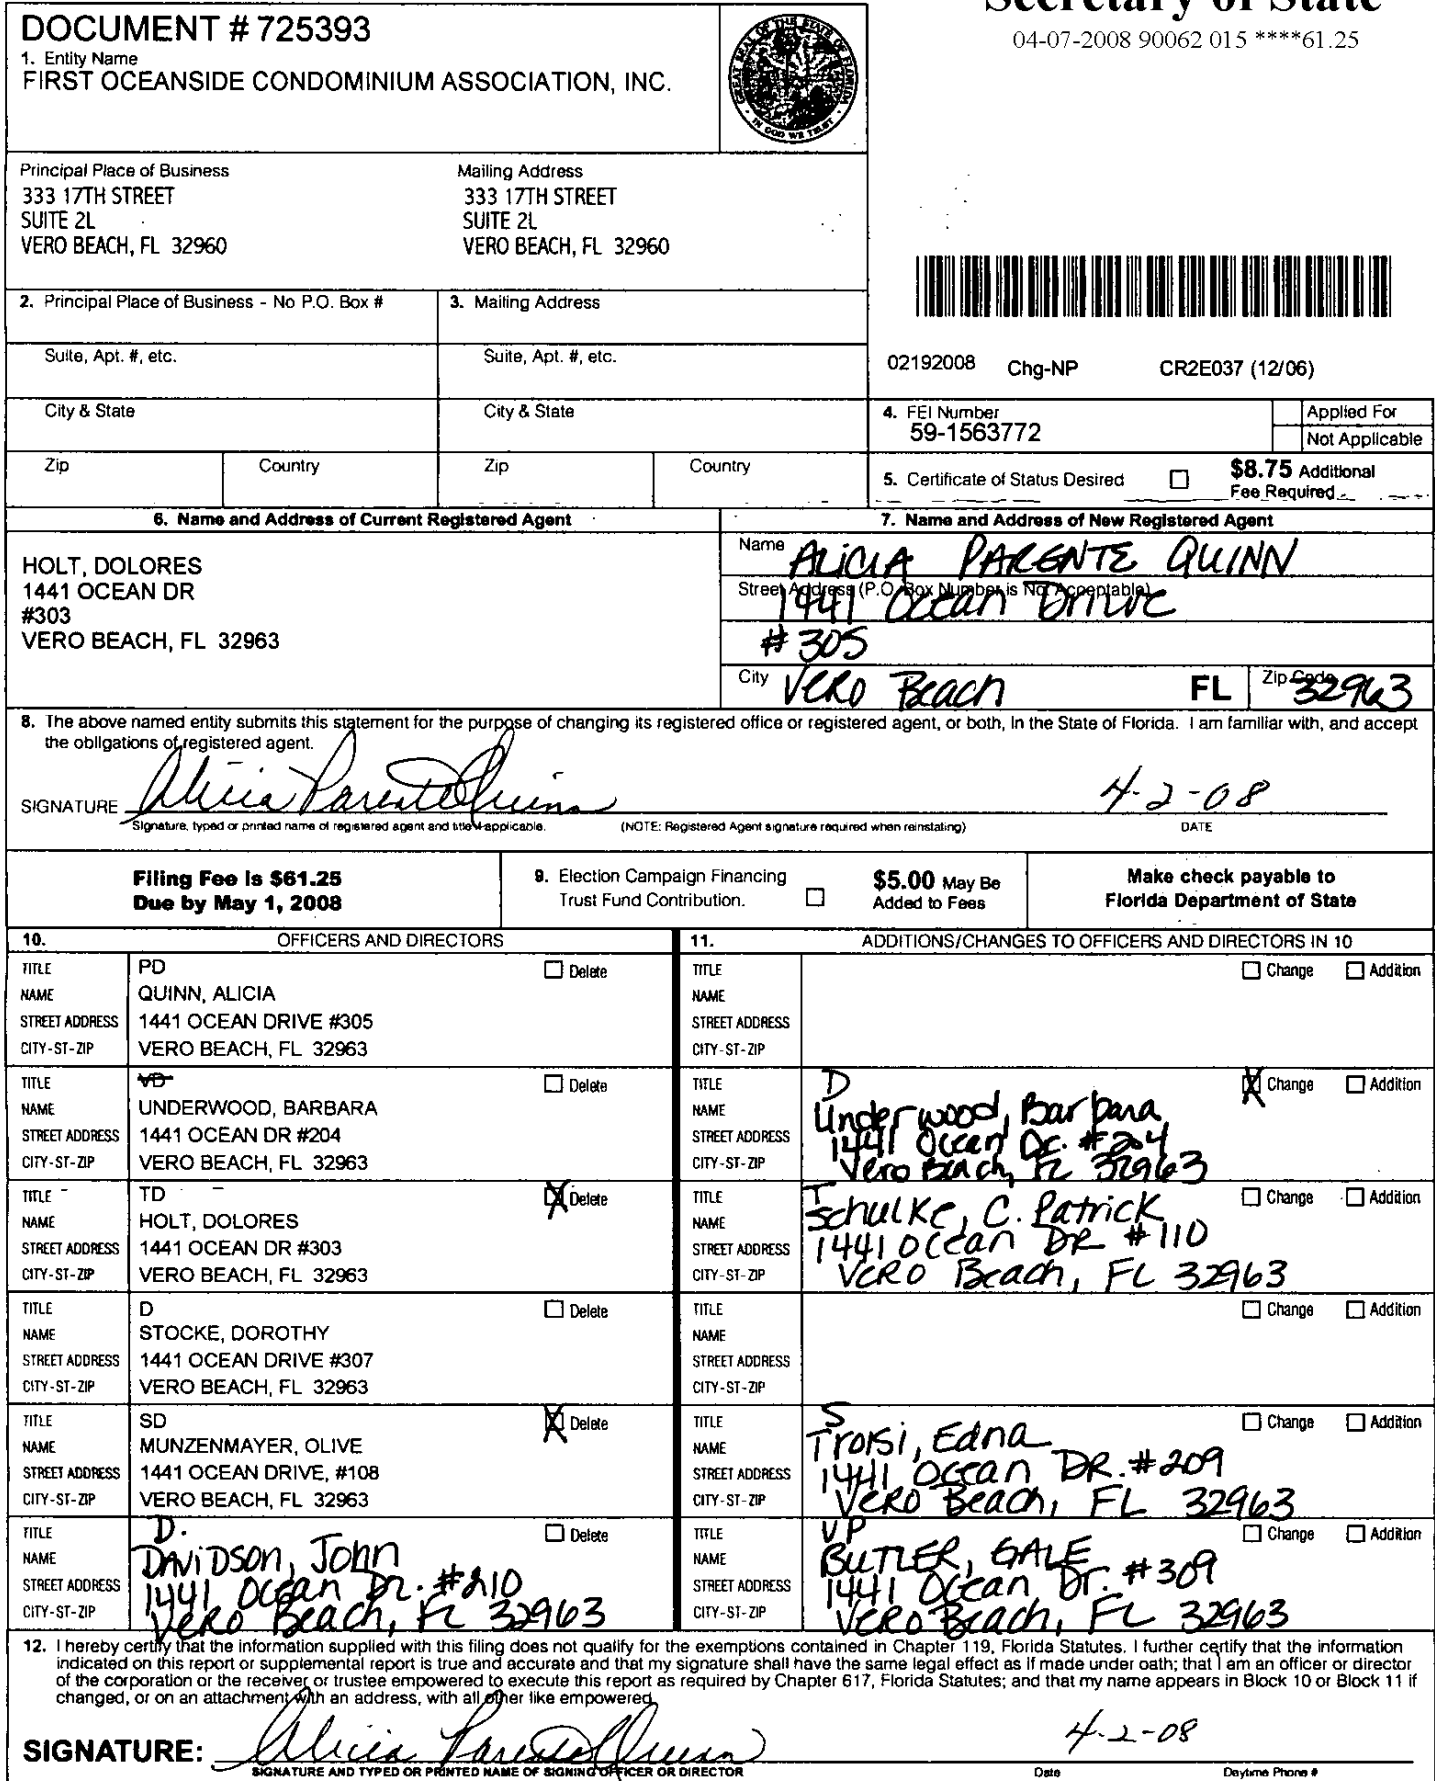 Secretary of State
04-07-2008 90062 015 ****61.25
DOCUMENT # 725393
1. Entity Name
FIRST OCEANSIDE CONDOMINIUM ASSOCIATION, INC.
GREAT SEAL OF THE STATE OF FLORIDA
IN GOD WE TRUST
Principal Place of Business
333 17TH STREET
SUITE 2L
VERO BEACH, FL 32960
Mailing Address
333 17TH STREET
SUITE 2L
VERO BEACH, FL 32960
2. Principal Place of Business - No P.O. Box #
3. Mailing Address
Suite, Apt. #, etc.
Suite, Apt. #, etc.
02192008 Chg-NP CR2E037 (12/06)
City & State
City & State
4. FEI Number
59-1563772
Applied For
Not Applicable
Zip
Country
Zip
Country
5. Certificate of Status Desired
$8.75 Additional
Fee Required
6. Name and Address of Current Registered Agent
HOLT, DOLORES
1441 OCEAN DR
#303
VERO BEACH, FL 32963
7. Name and Address of New Registered Agent
Name ALICIA PARENTE QUINN
Street Address (P.O. Box Number is Not Acceptable)
1441 Ocean Drive
#305
City Vero Beach FL Zip Code 32963
8. The above named entity submits this statement for the purpose of changing its registered office or registered agent, or both, in the State of Florida. I am familiar with, and accept
the obligations of registered agent.
SIGNATURE Alicia Parente Quinn 4-2-08
Signature, typed or printed name of registered agent and title if applicable. (NOTE: Registered Agent signature required when reinstating) DATE
Filing Fee is $61.25
Due by May 1, 2008
9. Election Campaign Financing
Trust Fund Contribution.
$5.00 May Be
Added to Fees
Make check payable to
Florida Department of State
10. OFFICERS AND DIRECTORS
11. ADDITIONS/CHANGES TO OFFICERS AND DIRECTORS IN 10
TITLE PD Delete
NAME QUINN, ALICIA
STREET ADDRESS 1441 OCEAN DRIVE #305
CITY-ST-ZIP VERO BEACH, FL 32963
TITLE Change Addition
NAME
STREET ADDRESS
CITY-ST-ZIP
TITLE VD Delete
NAME UNDERWOOD, BARBARA
STREET ADDRESS 1441 OCEAN DR #204
CITY-ST-ZIP VERO BEACH, FL 32963
TITLE D X Change Addition
NAME Underwood, Barbara
STREET ADDRESS 1441 Ocean Dr. #204
CITY-ST-ZIP Vero Beach, FL 32963
TITLE TD X Delete
NAME HOLT, DOLORES
STREET ADDRESS 1441 OCEAN DR #303
CITY-ST-ZIP VERO BEACH, FL 32963
TITLE T Change Addition
NAME Schulke, C. Patrick
STREET ADDRESS 1441 Ocean DR #110
CITY-ST-ZIP Vero Beach, FL 32963
TITLE D Delete
NAME STOCKE, DOROTHY
STREET ADDRESS 1441 OCEAN DRIVE #307
CITY-ST-ZIP VERO BEACH, FL 32963
TITLE Change Addition
NAME
STREET ADDRESS
CITY-ST-ZIP
TITLE SD X Delete
NAME MUNZENMAYER, OLIVE
STREET ADDRESS 1441 OCEAN DRIVE, #108
CITY-ST-ZIP VERO BEACH, FL 32963
TITLE S Change Addition
NAME Troisi, Edna
STREET ADDRESS 1441 Ocean DR. #209
CITY-ST-ZIP Vero Beach, FL 32963
TITLE D. Delete
NAME DAVIDSON, John
STREET ADDRESS 1441 Ocean Dr. #210
CITY-ST-ZIP Vero Beach, FL 32963
TITLE VP Change Addition
NAME BUTLER, GALE
STREET ADDRESS 1441 Ocean Dr. #309
CITY-ST-ZIP Vero Beach, FL 32963
12. I hereby certify that the information supplied with this filing does not qualify for the exemptions contained in Chapter 119, Florida Statutes. I further certify that the information
indicated on this report or supplemental report is true and accurate and that my signature shall have the same legal effect as if made under oath; that I am an officer or director
of the corporation or the receiver or trustee empowered to execute this report as required by Chapter 617, Florida Statutes; and that my name appears in Block 10 or Block 11 if
changed, or on an attachment with an address, with all other like empowered.
SIGNATURE: Alicia Parente Quinn 4-2-08
SIGNATURE AND TYPED OR PRINTED NAME OF SIGNING OFFICER OR DIRECTOR Date Daytime Phone #